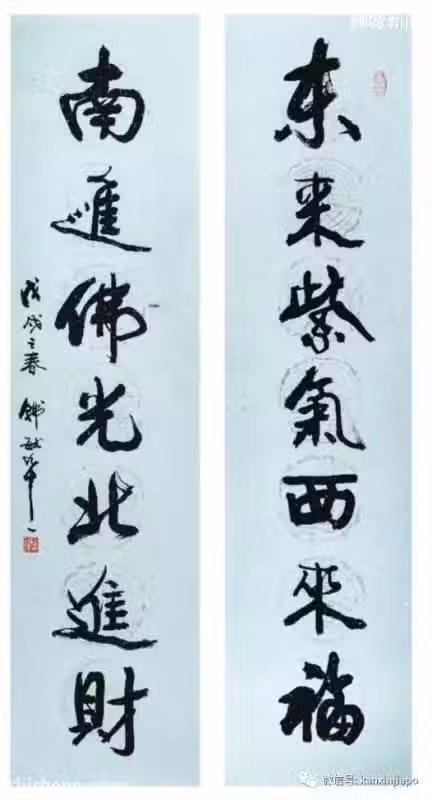 东来紫氣西来福
南進佛光北進財
戊戌之春
微信号: kanxinjiapo